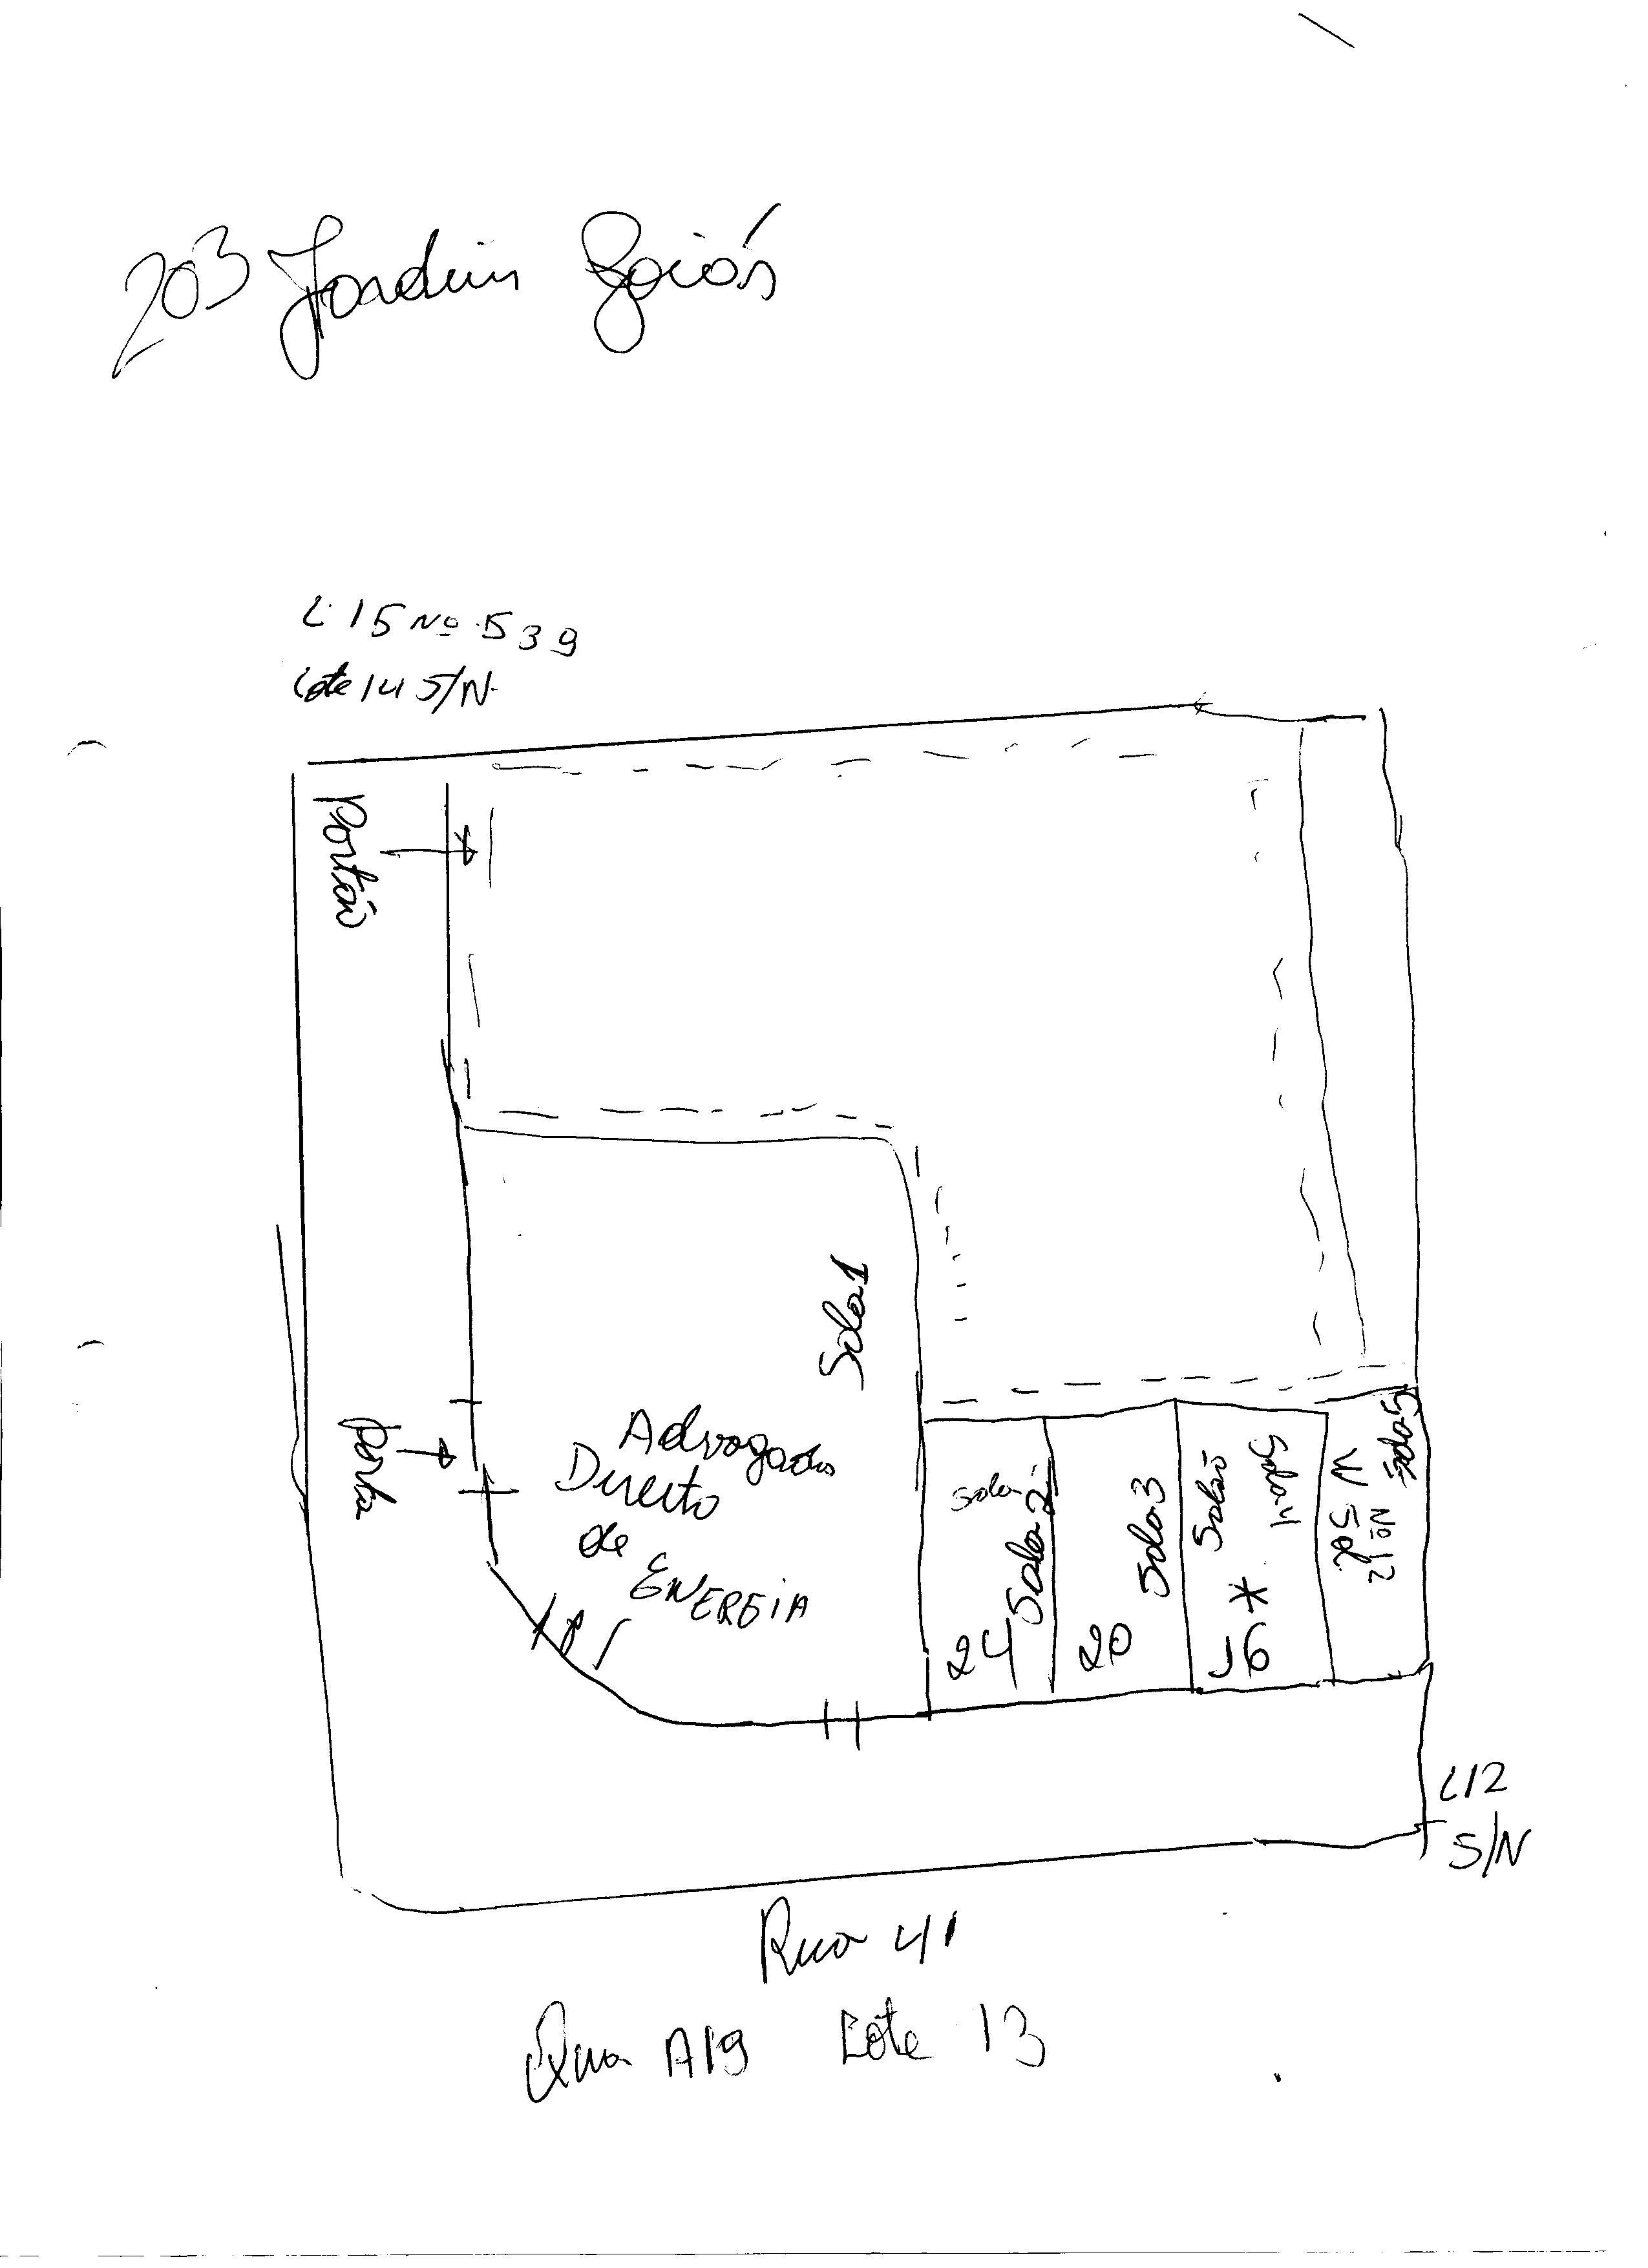 203 Jardim Goiás
L 15 Nº 539
Lote 14 S/N
Portão
Sala 1
Porta
Advogados
Direito
de
ENERGIA
Sala
Sala 2
24
Sala 3
20
Salão
Sala 4
16
Sala 5
Nº 12
L12
S/N
Rua 41
Qua A19 Lote 13